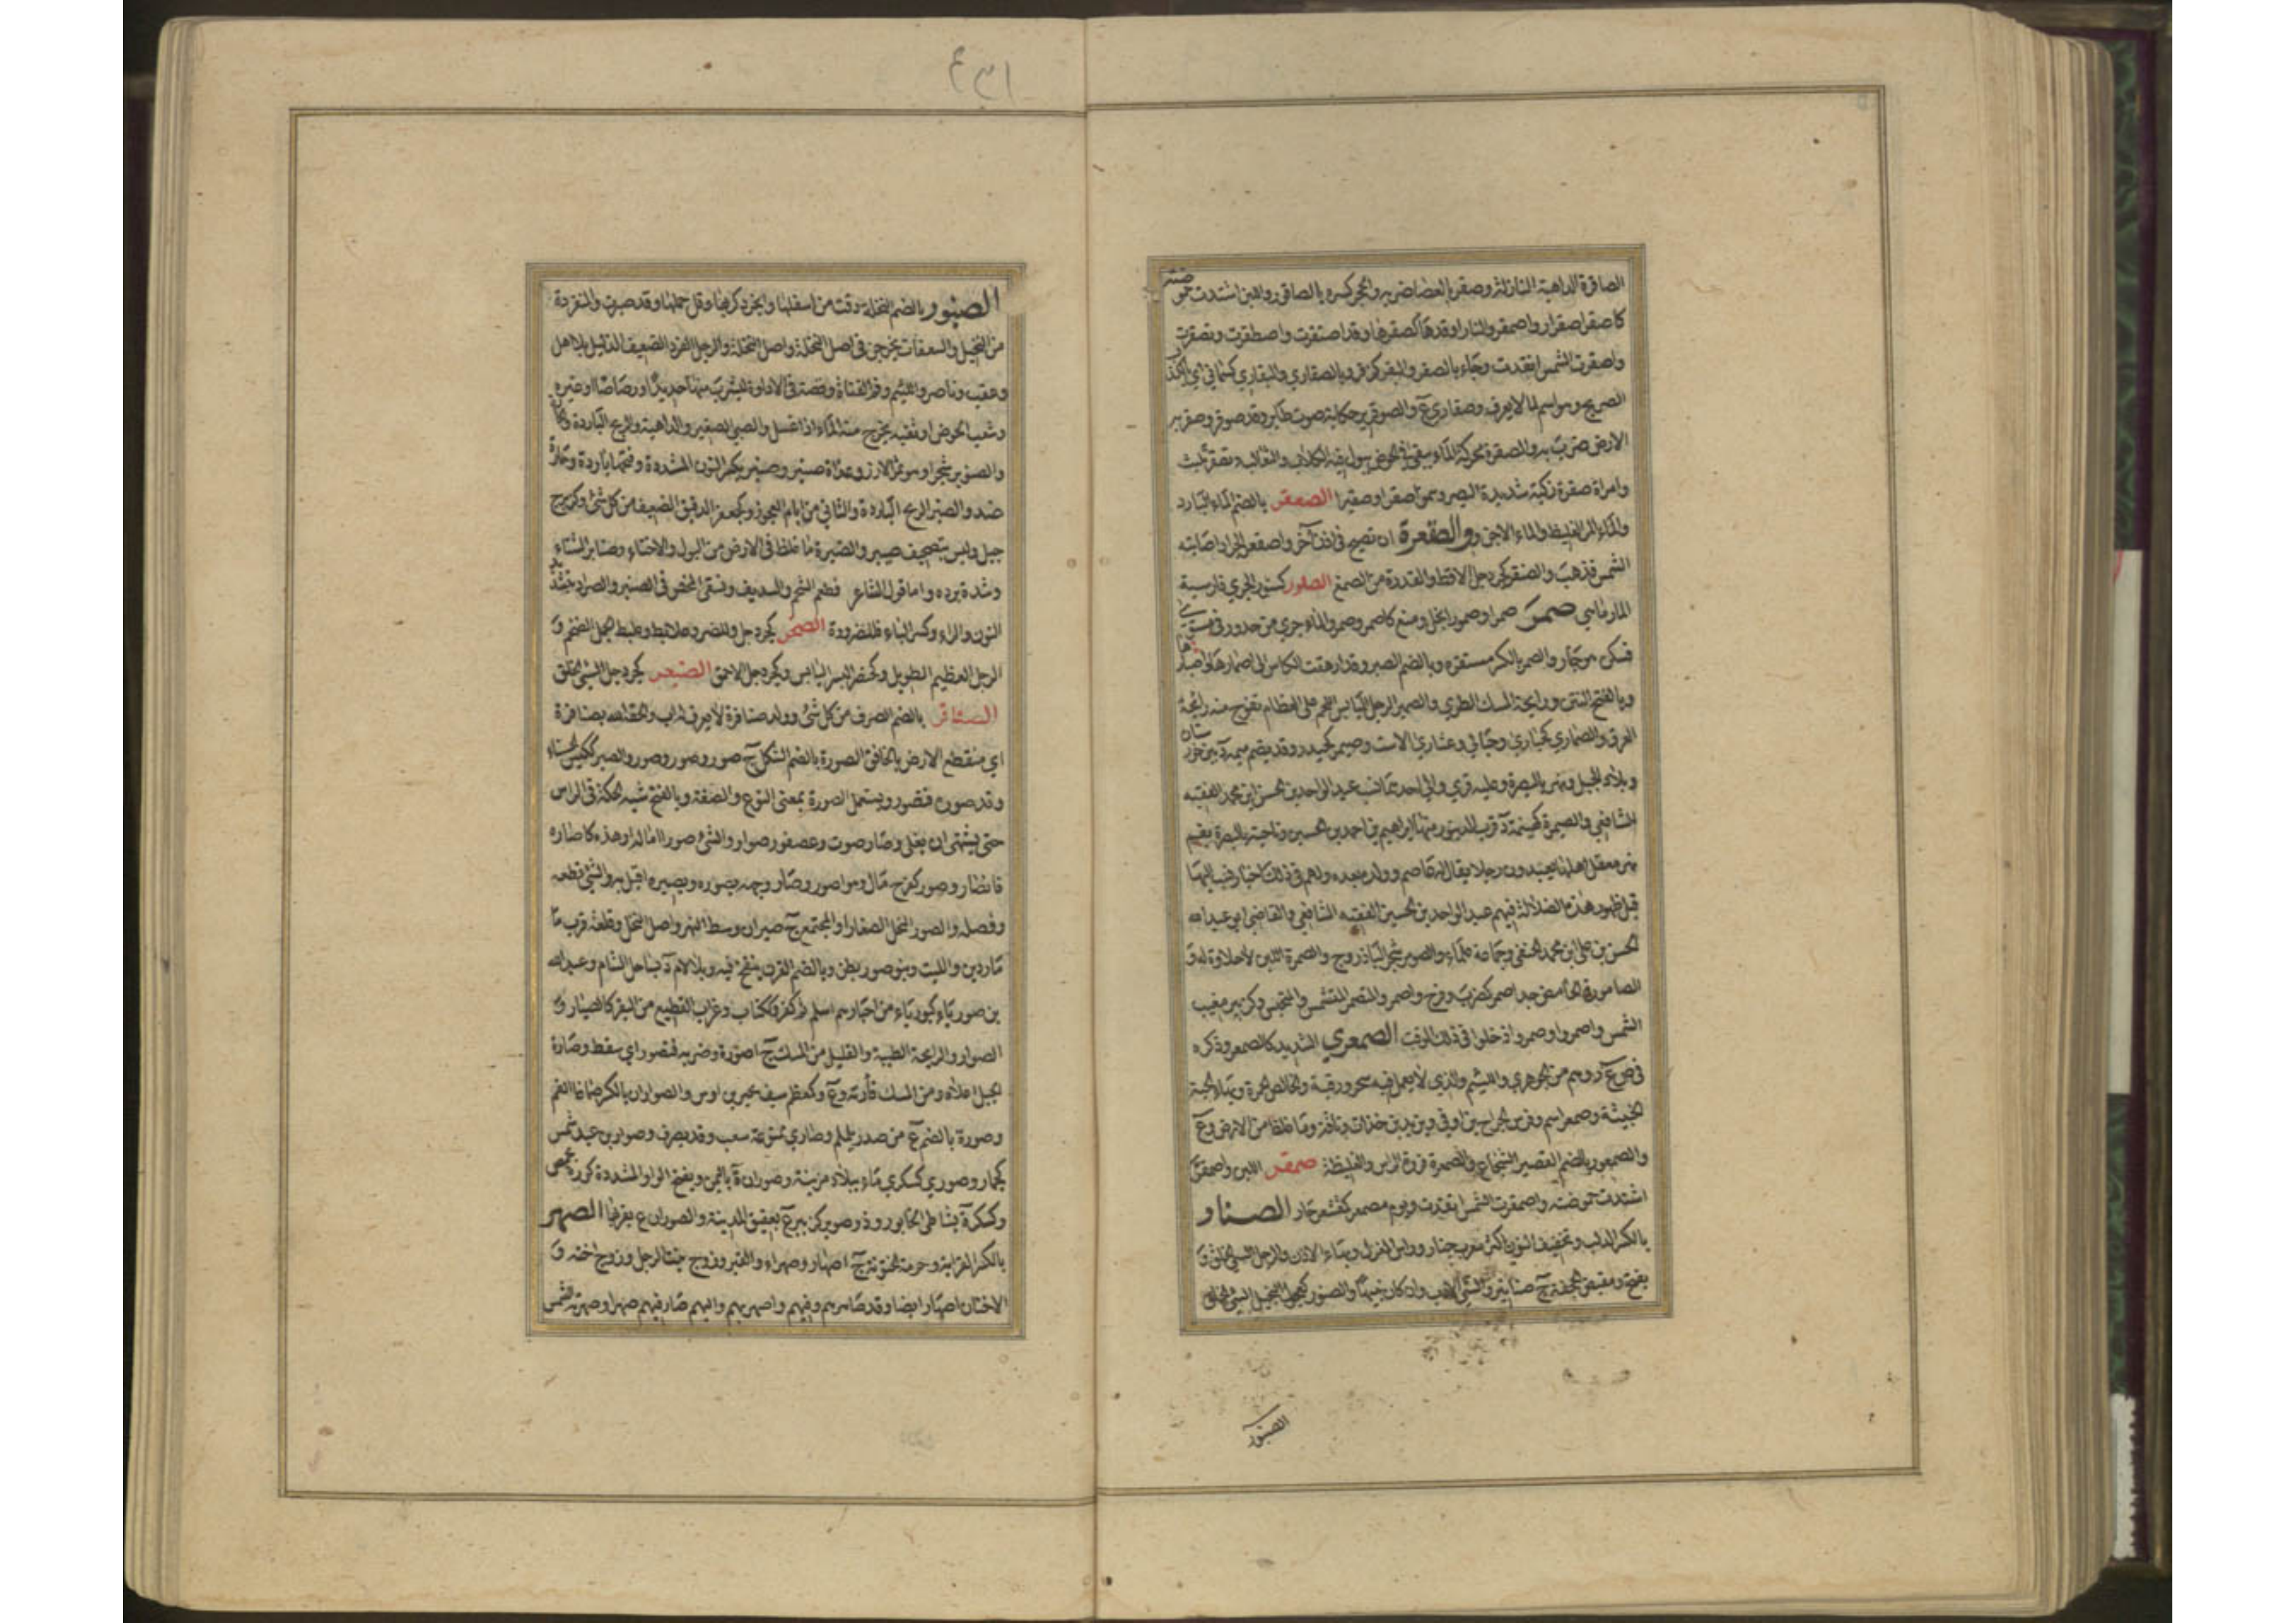 الصاقرة الداهية النازلة وصقر بالعصا ضربه والحجر كسره بالصاقور واللبن اشتدت حموضته
كاصقر اصقرارا واصمقر والنار اوقدها كصقرها وقد اصتقرت واصطقرت وتصقرت
واصقرت الشمس اتقدت وجاء بالصقر والبقر كزفر وبالصقاري والبقاري كسمانى اي بالكذب
الصريح وهو اسم لما لا يعرف وصقارى ع والصوقرير حكاية صوت طائر وقد صوقر وصقر به
الارض ضرب به والصقرة محركة الماء يبقى في الحوض يبول فيه الكلاب والثعالب وتصقر تلبث
وامراة صقرة زكية شديدة البصر وسموا صقرا وصقيرا الصعقر بالضم الماء البارد
والماء المر الغليظ والماء الاجن والصقعرة ان تصيح في اذن آخر واصقعر الجراد اصابته
الشمس فذهب والصنقر كجردحل الاقط والفدرة من الصمغ الصلور كسنور الجري فارسية
المارماهي صمر صمرا وصمورا بخل ومنع كاصمر وصمر والماء جرى من حدور في مستوى
فسكن وهو جار والصمر بالكسر مستقره وبالضم الصبر وقد ادهقت الكاس الى اصمارها واصبارها
وبالفتح النتن ورايحة المسك الطري والصمير الرجل اليابس اللحم على العظام تفوح منه رائحة
العرق والصمارى كحبارى وحبالى وعشارى الاست وصيمر كحيدر وقد يضم ميمه د بين خوزستان
وبلاد الجبل ونهر بالبصرة وعليه قرى والى احدهما نسب عبد الواحد بن الحسن ابن محمد الفقيه
الشافعي والصيمرة كهينمة د قرب الدينور منها ابراهيم بن احمد بن الحسين وناحية بالبصرة بفم
نهر معقل اهلها يعبدون رجلا يقال له عاصم وولده بعده ولهم في ذلك اخبار نسب اليها
قبل ظهور هذه الضلالة فيهم عبد الواحد بن الحسين الفقيه الشافعي والقاضي ابو عبد الله
الحسن بن علي ابن محمد الحنفي وجماعة علماء والصومر شجر الباذروج والصمرة اللبن لا حلاوة له و
الصامورة الحامض جدا صمر كضرب وفرح واصمر والمتصمر المتشمس والمتحبس وكزبير مغيب
الشمس واصمروا وصمروا اذ خلوا في ذلك الوقت الصمعري الشديد كالصمعر وذكره
في ص ع ر وهم من الجوهري واللئيم والذي لا يعمل فيه سحر ورقية والخالص الحمرة وبهاء الحية
الخبيثة وصمعر اسم وفرس الجراح بن اوفى ويزيد بن خذاق وناقة وما غلظ من الارض وع
والصمعور بالضم القصير الشجاع والصمعرة فروة الراس والغليظة صمقر اللبن واصمقر
اشتدت حموضته واصمقرت الشمس اتقدت ويوم مصمقر كمقشعر حار الصنار
بالكسر الدلب وتخفيف النون اكثر معرب جنار وراس المغزل وبهاء الاذن والرجل السيئ الخلق و
يفتح ومقبض الحجفة ج صنانير والسيئ الادب وان كان نبيها والصنور كعجول البخيل السيئ الخلق
الصنبور
٤٣١
الصنبور بالضم النخلة دقت من اسفلها وانجرد كربها وقل حملها وقد صنبرت والمنفردة
من النخيل والسعفات يخرجن في اصل النخلة واصل النخلة والرجل الفرد الضعيف الذليل بلا اهل
وعقب وناصر واللئيم وفم القناة وقصبة في الاداوة يشرب منها حديدا او رصاصا او غيره
ومثعب الحوض او ثقبه يخرج منه الماء اذا غسل والصبي الصغير والداهية والريح الباردة والحارة
والصنوبر شجر او هو ثمر الارز وغداة صنبر وصنبر بكسر النون المشددة وفتحها باردة وحارة
ضد والصنبر الريح الباردة والثاني من ايام العجوز وكجعفر الدقيق الضعيف من كل شئ وكزبرج
جبل وليس بتصحيف صيبر والصنبرة ما غلظ في الارض من البول والاخثاء وصنابر الشتاء
وشدة برده واما قول الشاعر فطعم الشحم والسديف ونسقى المحض في الصنبر والصراد فبتشديد
النون والراء وكسر الباء فللضرورة الصنخر كجردحل وللخضر وعلابط وعلبط الجمل الضخم و
الرجل العظيم الطويل وكخنصر البسر اليابس وكجردحل الاحمق الصنعبر كجردحل السيئ الخلق
الصنافر بالضم الصرف من كل شئ وولد صنافرة لا يعرف له اب والحقه الله بصنافرة
اي منقطع الارض بالخافق الصورة بالضم الشكل ج صور وصور وصور والصير ككيس الحسنها
وقد صوره فتصور ويستعمل الصورة بمعنى النوع والصفة وبالفتح شبه الحكة في الراس
حتى يشتهي ان يفلى وصار صوت وعصفور صوار والشئ صورا اماله او هذه كاصاره
فانصار وصور كفرح مال وهو اصور وصار وجهه يصوره ويصيره اقبل به والشئ قطعه
وفصله والصور النخل الصغار او المجتمع ج صيران وسط النهر واصل النخل وقلعة قرب
ماردين والليت وبنو صور بطن وبالضم القرن ينفخ فيه وبلا لام د بساحل الشام وعبد الله
بن صورياء كبورياء من احبارهم اسلم ثم كفر وككتاب وغراب القطيع من البقر كالصيار و
الصوار والرايحة الطيبة والقليل من المسك ج اصورة وضربه فتصور اي سقط وصارة
الجبل اعلاه ومن المسك فأرته وع وكمعظم سيف بحير بن اوس والصواران بالكسر صماغا الفم
وصورة بالضم ع من صدر يلملم وصارى ممنوعة شعب وقد يصرف وصوار بن عبد شمس
كجمار وصورى كسكرى ماء ببلاد مزينة وصوران ة باليمن وبفتح الواو المشددة كورة بحمص
وكسكر ة بشاطئ الخابور وذو صوير كزبير ع بعقيق المدينة والصوران ع بقربها الصهر
بالكسر القرابة وحرمة الختونة ج اصهار وصهراء والقبر وزوج بنت الرجل وزوج اخته و
الاختان اصهار ايضا وقد صاهرهم وفيهم واصهر بهم واليهم صار فيهم صهرا وصهرته الشمس